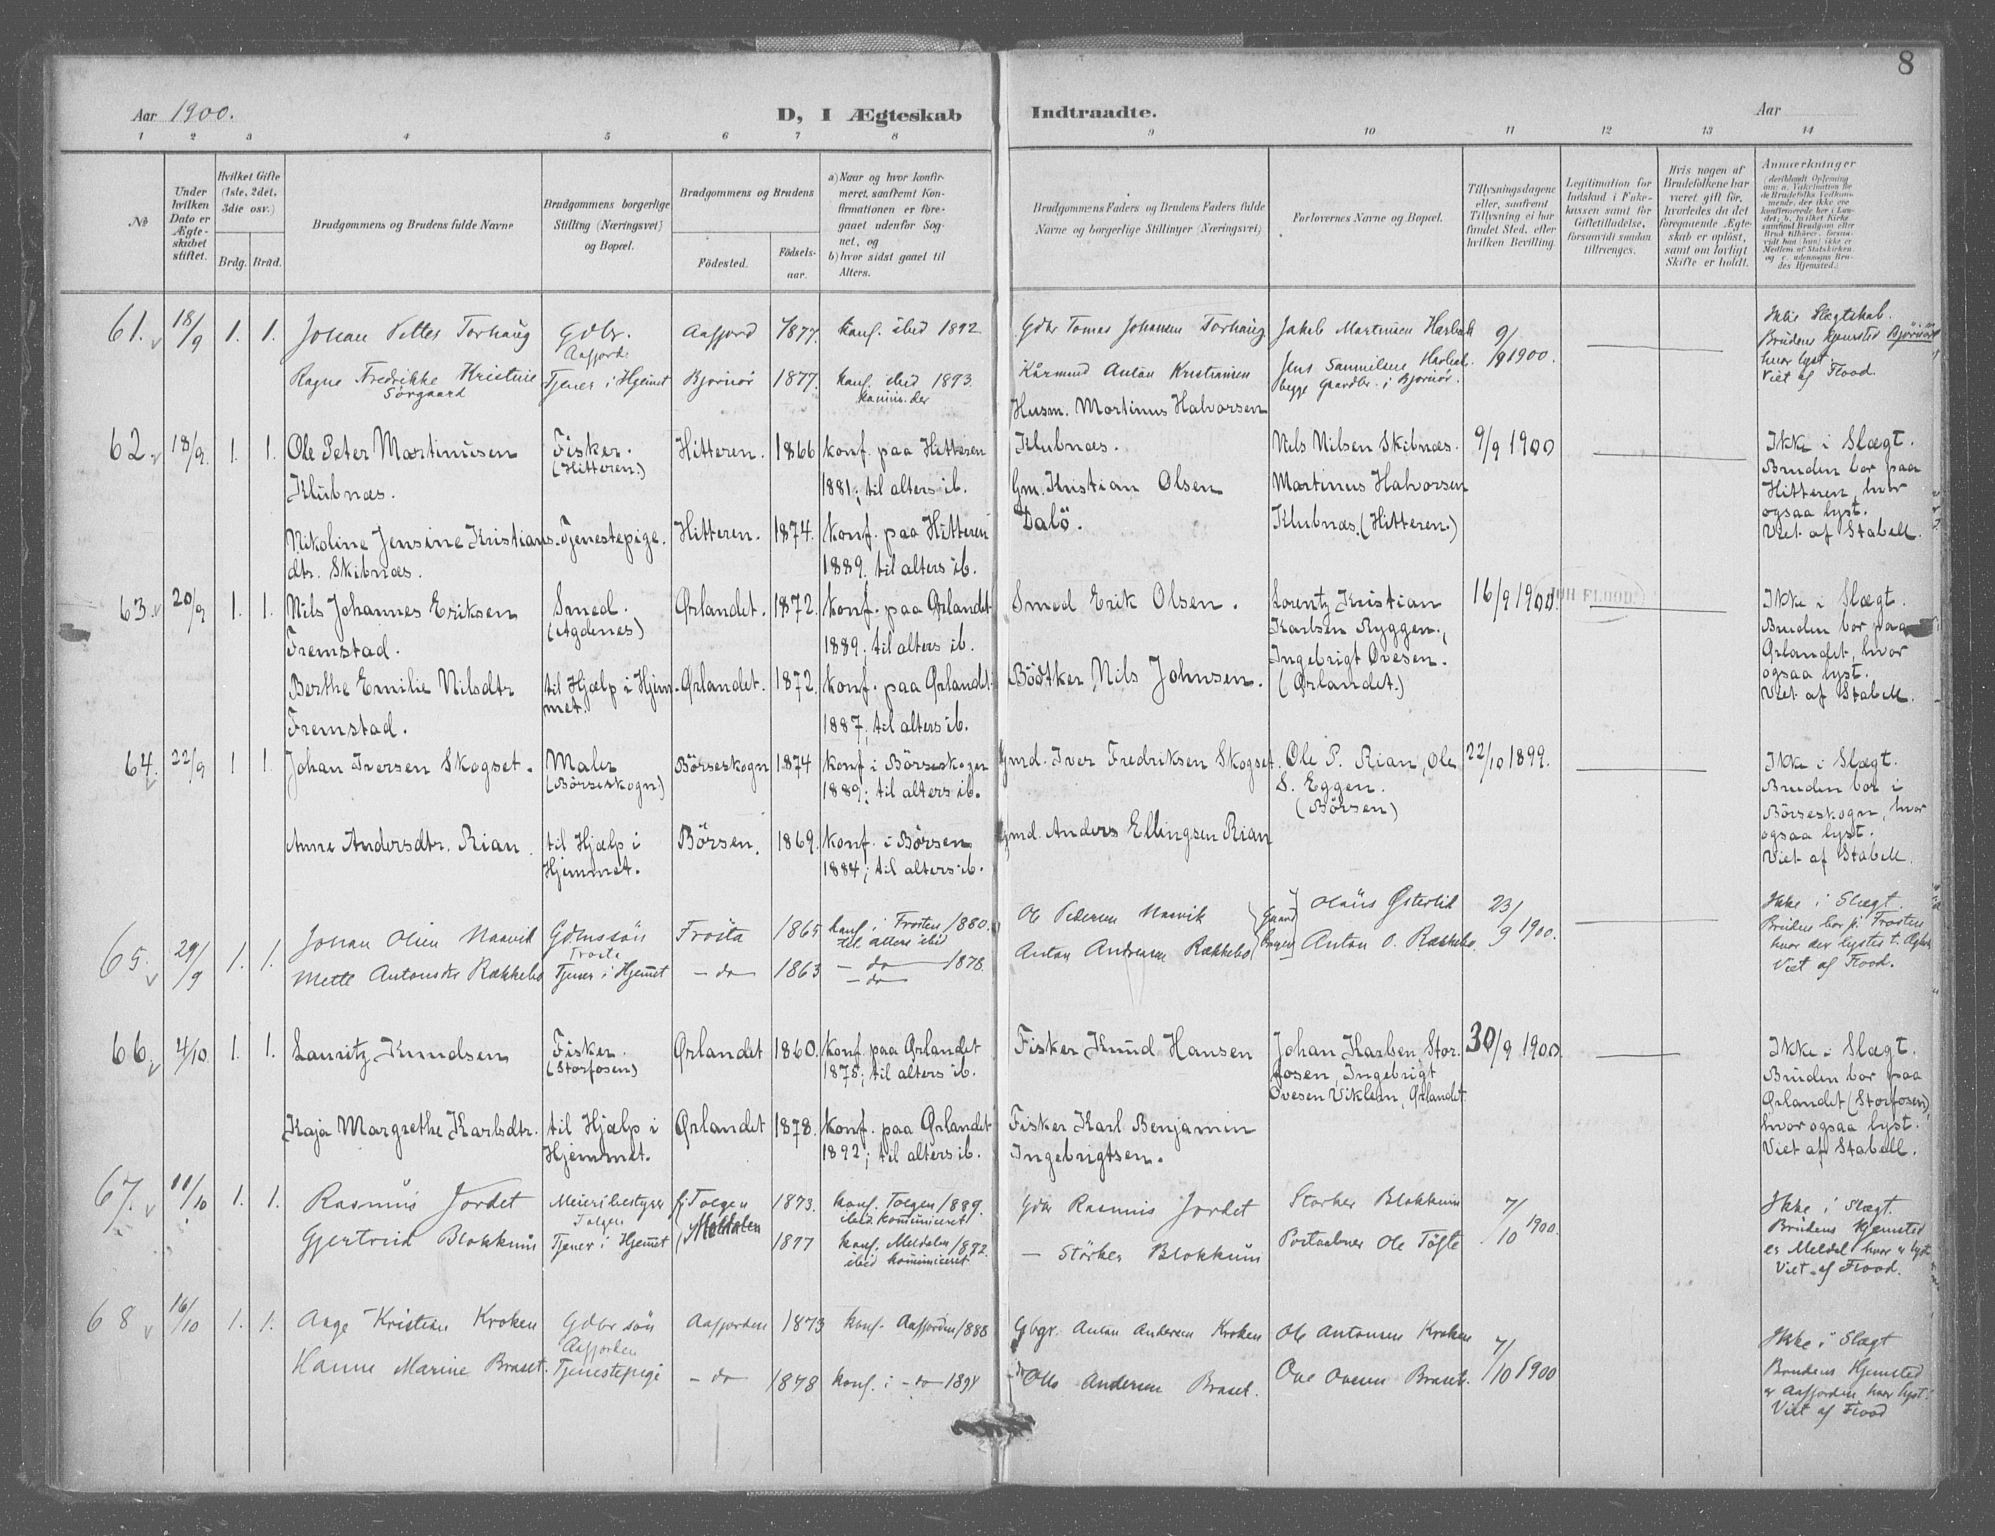 8
Aar 1900. D, I Ægteskab Indtraadte. Aar
1 2 3 4 5 6 7 8 9 10 11 12 13 14
№
Under hvilken Dato er Ægteskabet stiftet.
Hvilket Gifte (1ste, 2det, 3die osv.)
Brdg. Brud.
Brudgommens og Brudens fulde Navne
Brudgommens borgerlige Stilling (Næringsvei) og Bopæl.
Brudgommens og Brudens
Fødested.
Fødselsaar.
a) Naar og hvor konfirmeret, saafremt Konfirmationen er foregaaet udenfor Sognet, og
b) hvor sidst gaaet til Alters.
Brudgommens Faders og Brudens Faders fulde Navne og borgerlige Stillinger (Næringsvei)
Forlovernes Navne og Bopæl.
Tillysningsdagene eller, saafremt Tillysning ei har fundet Sted, efter hvilken Bevilling.
Legitimation for Indskud i Enkekassen samt for Giftetilladelse, forsaavidt saadan tiltrænges.
Hvis nogen af Brudefolkene har været gift før, hvorledes da det foregaaende Ægteskab er opløst, samt om lovligt Skifte er holdt.
Anmærkninger
61. 18/9 1. 1. Johan Petter Torhaug Gdbr. Aafjord Aafjord 1877. konf. ibid 1892 Gdbr Tomas Johansen Torhaug Jakob Martinsen Harbak 9/9 1900. Ikke Slægtskab.
Brudens Hjemsted Bjørnør
hvor lyst.
Viet af Flood.
Ragna Fredrikke Kristine Sørgaard Tjener i Hjemmet Bjørnør 1877. konf. ibid 1893. Kårmand Anton Kristiansen Jens Samuelsen Harbak begge Gaardbr. i Bjørnør.
62. 18/9. 1. 1. Ole Peter Martinusen Klubnæs. Fisker. (Hitteren.) Hitteren. 1866 konf. paa Hitteren 1881; til alters ib. Husm. Martinus Halvorsen Klubnæs. Nils Nilsen Skibnæs. 9/9 1900
Ikke i Slægt.
Bruden bor paa
Hitteren, hvor
ogsaa lyst.
Viet af Stabell.
Nikoline Jensine Kristiansdtr. Skibnæs. Tjenestepige. Hitteren. 1874. konf. paa Hitteren 1889. til alters ib. Gm. Kristian Olsen Dalø. Martinus Halvorsen Klubnæs. (Hitteren.)
63. 20/9 1. 1. Nils Johannes Eriksen Fremstad. Smed. (Agdenes) Ørlandet. 1872. konf. paa Ørlandet 1889; til alters ib. Smed Erik Olsen. Lorentz Kristian Karlsen Ryggen, 16/9 1900.
Ikke i Slægt.
Bruden bor paa
Ørlandet, hvor
ogsaa lyst.
Viet af Stabell.
Berthe Emilie Nilsdtr Fremstad. til Hjælp i Hjemmet. Ørlandet. 1872. konf. paa Ørlandet 1887; til alters ib. Bödtker Nils Johnsen. Ingebrigt Ovesen. (Ørlandet.)
64. 22/9 1 1. Johan Iversen Skogset. Maler (Börseskogn.) Börseskogn 1874 konf i Börseskogn 1889; til alters ib. Gmd. Iver Fredriksen Skogset. Ole P. Rian, Ole S. Eggen. (Börsen) 22/10 1899.
Ikke i Slægt.
Bruden bor i
Börseskogn, hvor
ogsaa lyst.
Viet af Stabell.
Anne Andersdtr. Rian til Hjælp i Hjemmet. Börsen. 1869. konf. i Börsen 1884; til alters ib. Gmd. Anders Ellingsen Rian
65. 29/9 1. 1. Johan Olsen Naavik Gdmssön Frosta Frosta 1865 konf. i Frosten 1880. til alters ibid Ole Pedersen Naavik Olaus Østerlid 23/9 1900.
Ikke i Slægt.
Bruden bor p. Frosten
hvor der lystes
Viet af Flood.
Mette Antonsdtr Rækkebo Tjener i Hjemmet - do 1863 - do - 1878. - do - Anton Andersen Rækkebo Anton O. Rækkebo.
66. 4/10 1. 1. Lauritz Knudsen Fisker. (Storfosen) Ørlandet 1860. konf. paa Ørlandet 1875; til alters ib. Fisker Knud Hansen Johan Karlsen Storfosen, Ingebrigt Ovesen Viklem, Ørlandet. 30/9 1900
Ikke i Slægt.
Bruden bor paa
Ørlandet (Storfosen),
hvor ogsaa lyst.
Viet af Stabell.
Kaja Margrethe Karlsdtr. til Hjælp i Hjemmet. Ørlandet 1878. konf. paa Ørlandet 1892; til alters ib. Fisker Karl Benjamin Ingebrigtsen.
67. 11/10 1. 1. Rasmus Jordet Meieribestyrer Tolgen Tolgen 1873. konf. Tolgen 1889. ibid kommuniceret Gdbr Rasmus Jordet Størker Blokkum 7/10 1900.
Ikke i Slægt.
Brudens Hjemsted
er Meldal hvor er lyst
Viet af Flood.
Gjertrud Blokkum Tjener i Hjemmet Meldalen 1877 konf. Meldalen 1892. ibid kommuniceret - Størker Blokkum Postaabner Ole Töfte
68 16/10 1. 1. Aage Kristian Kroken Gdbr sön Aafjorden Aafjorden 1873 konf. Aafjorden 1888 Gbgr. Anton Andersen Kroken Ole Antonsen Kroken 7/10 1900
Ikke i Slægt
Brudens Hjemsted
er Aafjorden hvor lyst.
Viet af Flood
Hanna Marine Braset. Tjenestepige - do 1878 konf. i - do 1894 do Otto Andersen Braset. Ove Ovesen Braset.